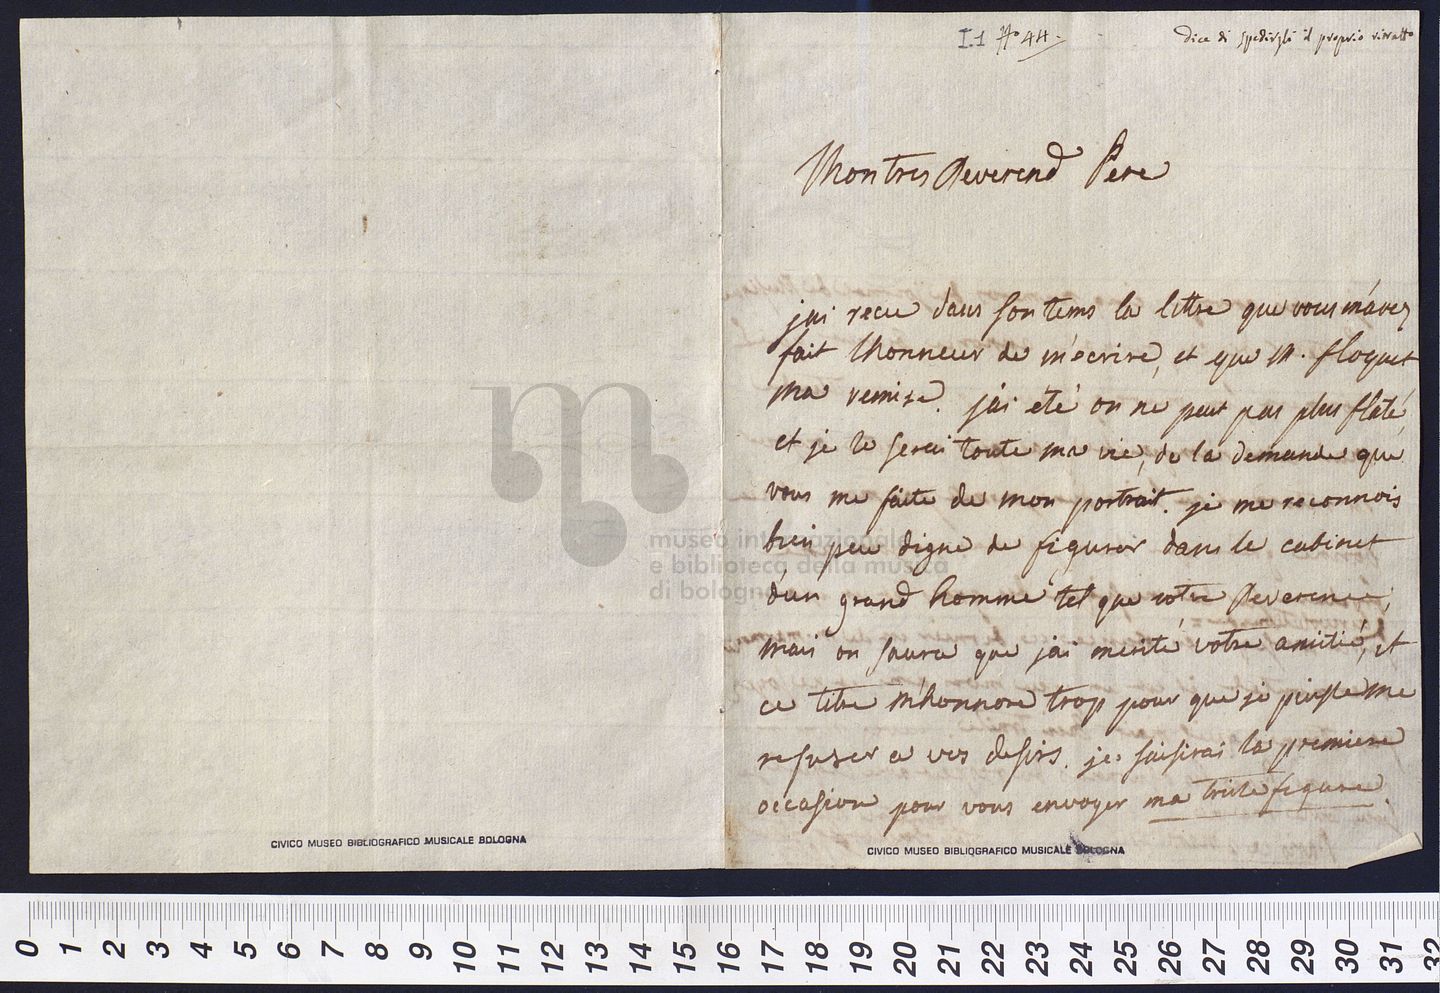 I.1 No 44.
dice di spedirgli il proprio ritratto
Mon tres Reverend Pere
jai recu dans son tems la lettre que vous m'avez
fait lhonneur de m'ecrire, et que M. floquet
ma remise. j'ai eté on ne peut pas plus flaté,
et je le serai toute ma vie, de la demande que
vous me faite de mon portrait. je me reconnois
bien peu digne de figurer dans le cabinet
d'un grand homme tel que votre Reverence,
mais on saura que j'ai merité votre amitié, et
ce titre m'honnore trop pour que je puisse me
refuser a vos desirs. je saisirai la premiere
occasion pour vous envoyer ma triste figure.
museo internazionale
e biblioteca della musica
di bologna
CIVICO MUSEO BIBLIOGRAFICO MUSICALE BOLOGNA
CIVICO MUSEO BIBLIOGRAFICO MUSICALE BOLOGNA
0 1 2 3 4 5 6 7 8 9 10 11 12 13 14 15 16 17 18 19 20 21 22 23 24 25 26 27 28 29 30 31 32